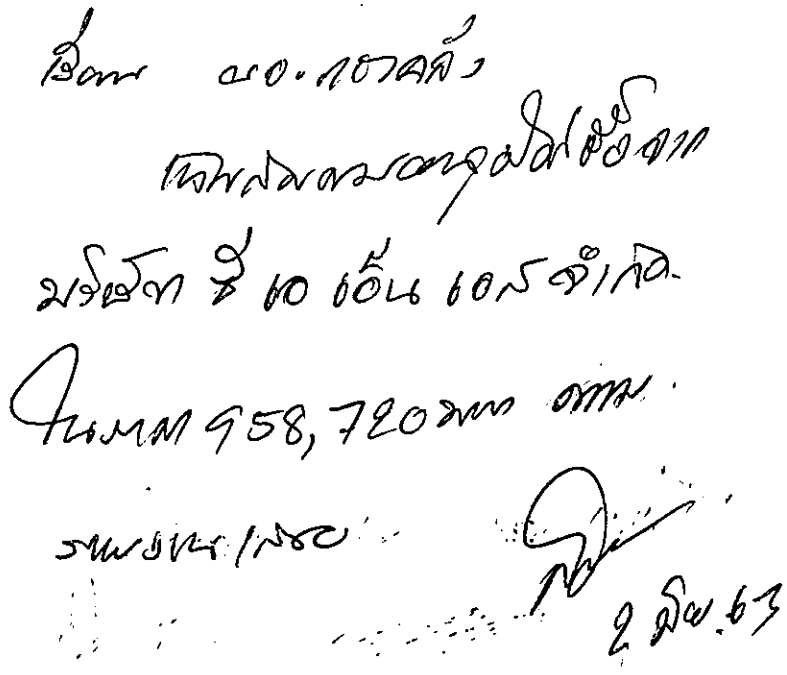 เรียน ผอ.กองคลัง
เห็นสมควรอนุมัติซื้อจาก
บริษัท ซี เอ เอ็น เอส จำกัด
ในราคา 958,720 บาท ตาม
รายงานเสนอ
2 มิย. 63